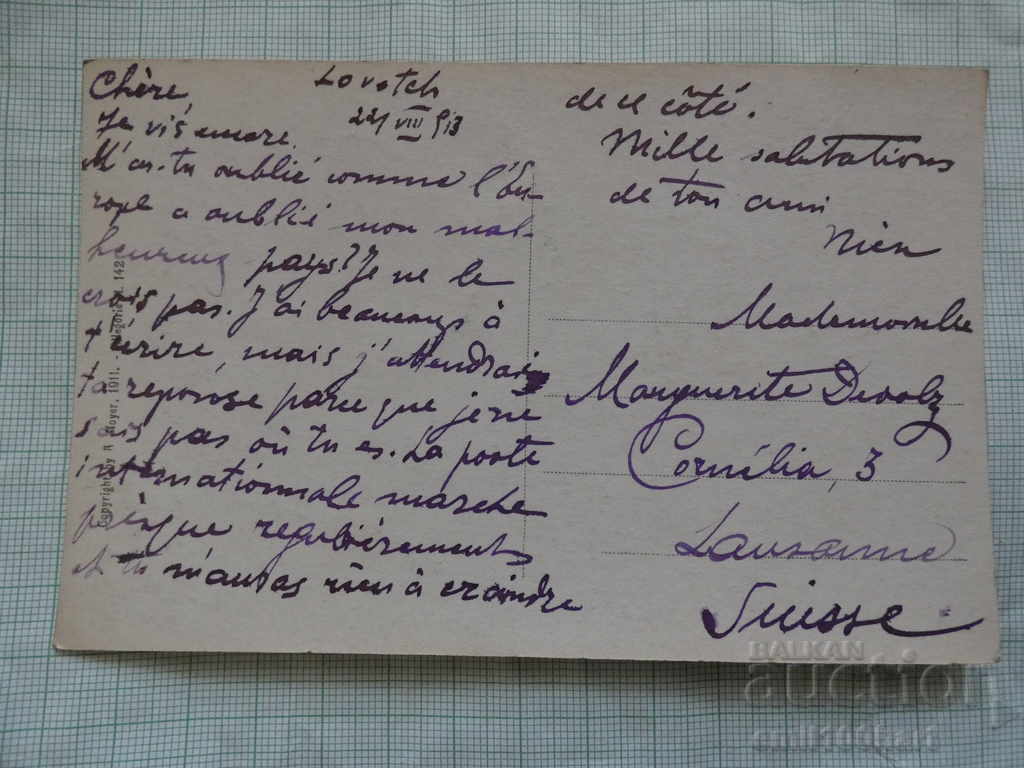 Lovetch
22/VIII 913
Chère,
Je vis encore.
M'as-tu oublié comme l'Eu-
rope a oublié mon mal-
heureux pays? Je ne le
crois pas. J'ai beaucoup à
t'écrire, mais j'attendrai
ta réponse parce que je ne
sais pas où tu es. La poste
internationnale marche
presque regulièrements
et tu n'auras rien à craindre
de ce côté.
Mille salutations
de ton ami
Mademoiselle
Marguerite
Cornélia, 3
Lausanne
Suisse
Copyright by 1911. 142
BALKAN
auction